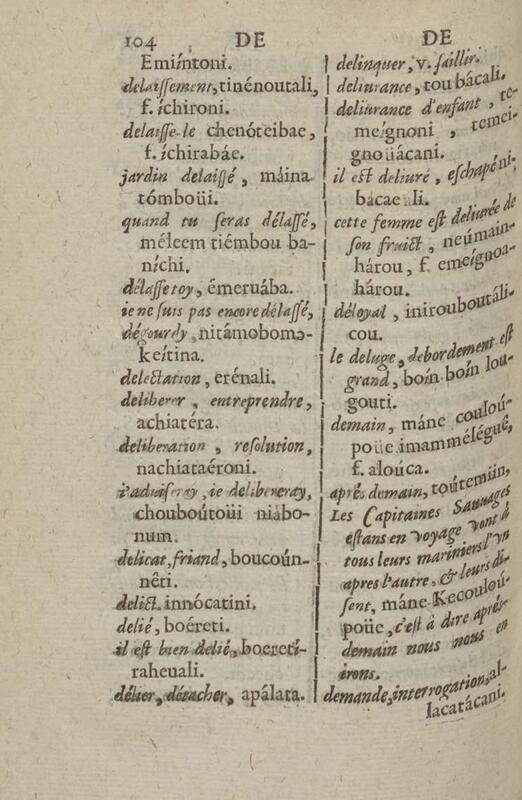 104 DE
Emiíntoni.
delaissement, tinénoutali,
f. íchironi.
delaisse-le chenóteibae,
f. íchirabáe.
jardin delaissé, máina
tómboüi.
quand tu seras délassé,
méleem tiémbou ba-
níchi.
délasse toy, émeruába.
ie ne suis pas encore délassé,
dégourdy, nitámobomo-
keítina.
delectation, erénali.
deliberer, entreprendre,
achiatéra.
deliberation, resolution,
nachiataéroni.
i'aduiseray, ie delibereray,
chouboútoüi niabo-
num.
delicat, friand, boucoún-
nêti.
delict, innócatini.
delié, boéreti.
il est bien delié, boereti-
raheuali.
délier, détacher, apálata.
DE
delinquer, v. faillir.
deliurance, tou bácali.
deliurance d'enfant, te-
meígnoni, temei-
gnoüácani.
il est deliuré, eschapé ni-
bácae ali.
cette femme est deliurée de
son fruict, neúmain-
hárou, f. emeígnoa-
hárou.
déloyal, inirouboutáli-
cou.
le deluge, debordement est
grand, boín boín lou-
gouti.
demain, máne couloú-
poüe imammélégué,
f. aloúca.
aprés demain, toútemiin,
Les Capitaines Sauuages
estans en voyage vont à
tous leurs mariniers l'vn
apres l'autre, & leurs di-
sent, máne Kecouloú-
poüe, c'est à dire aprés-
demain nous nous en
irons.
demande, interrogation, al-
lacatácani.